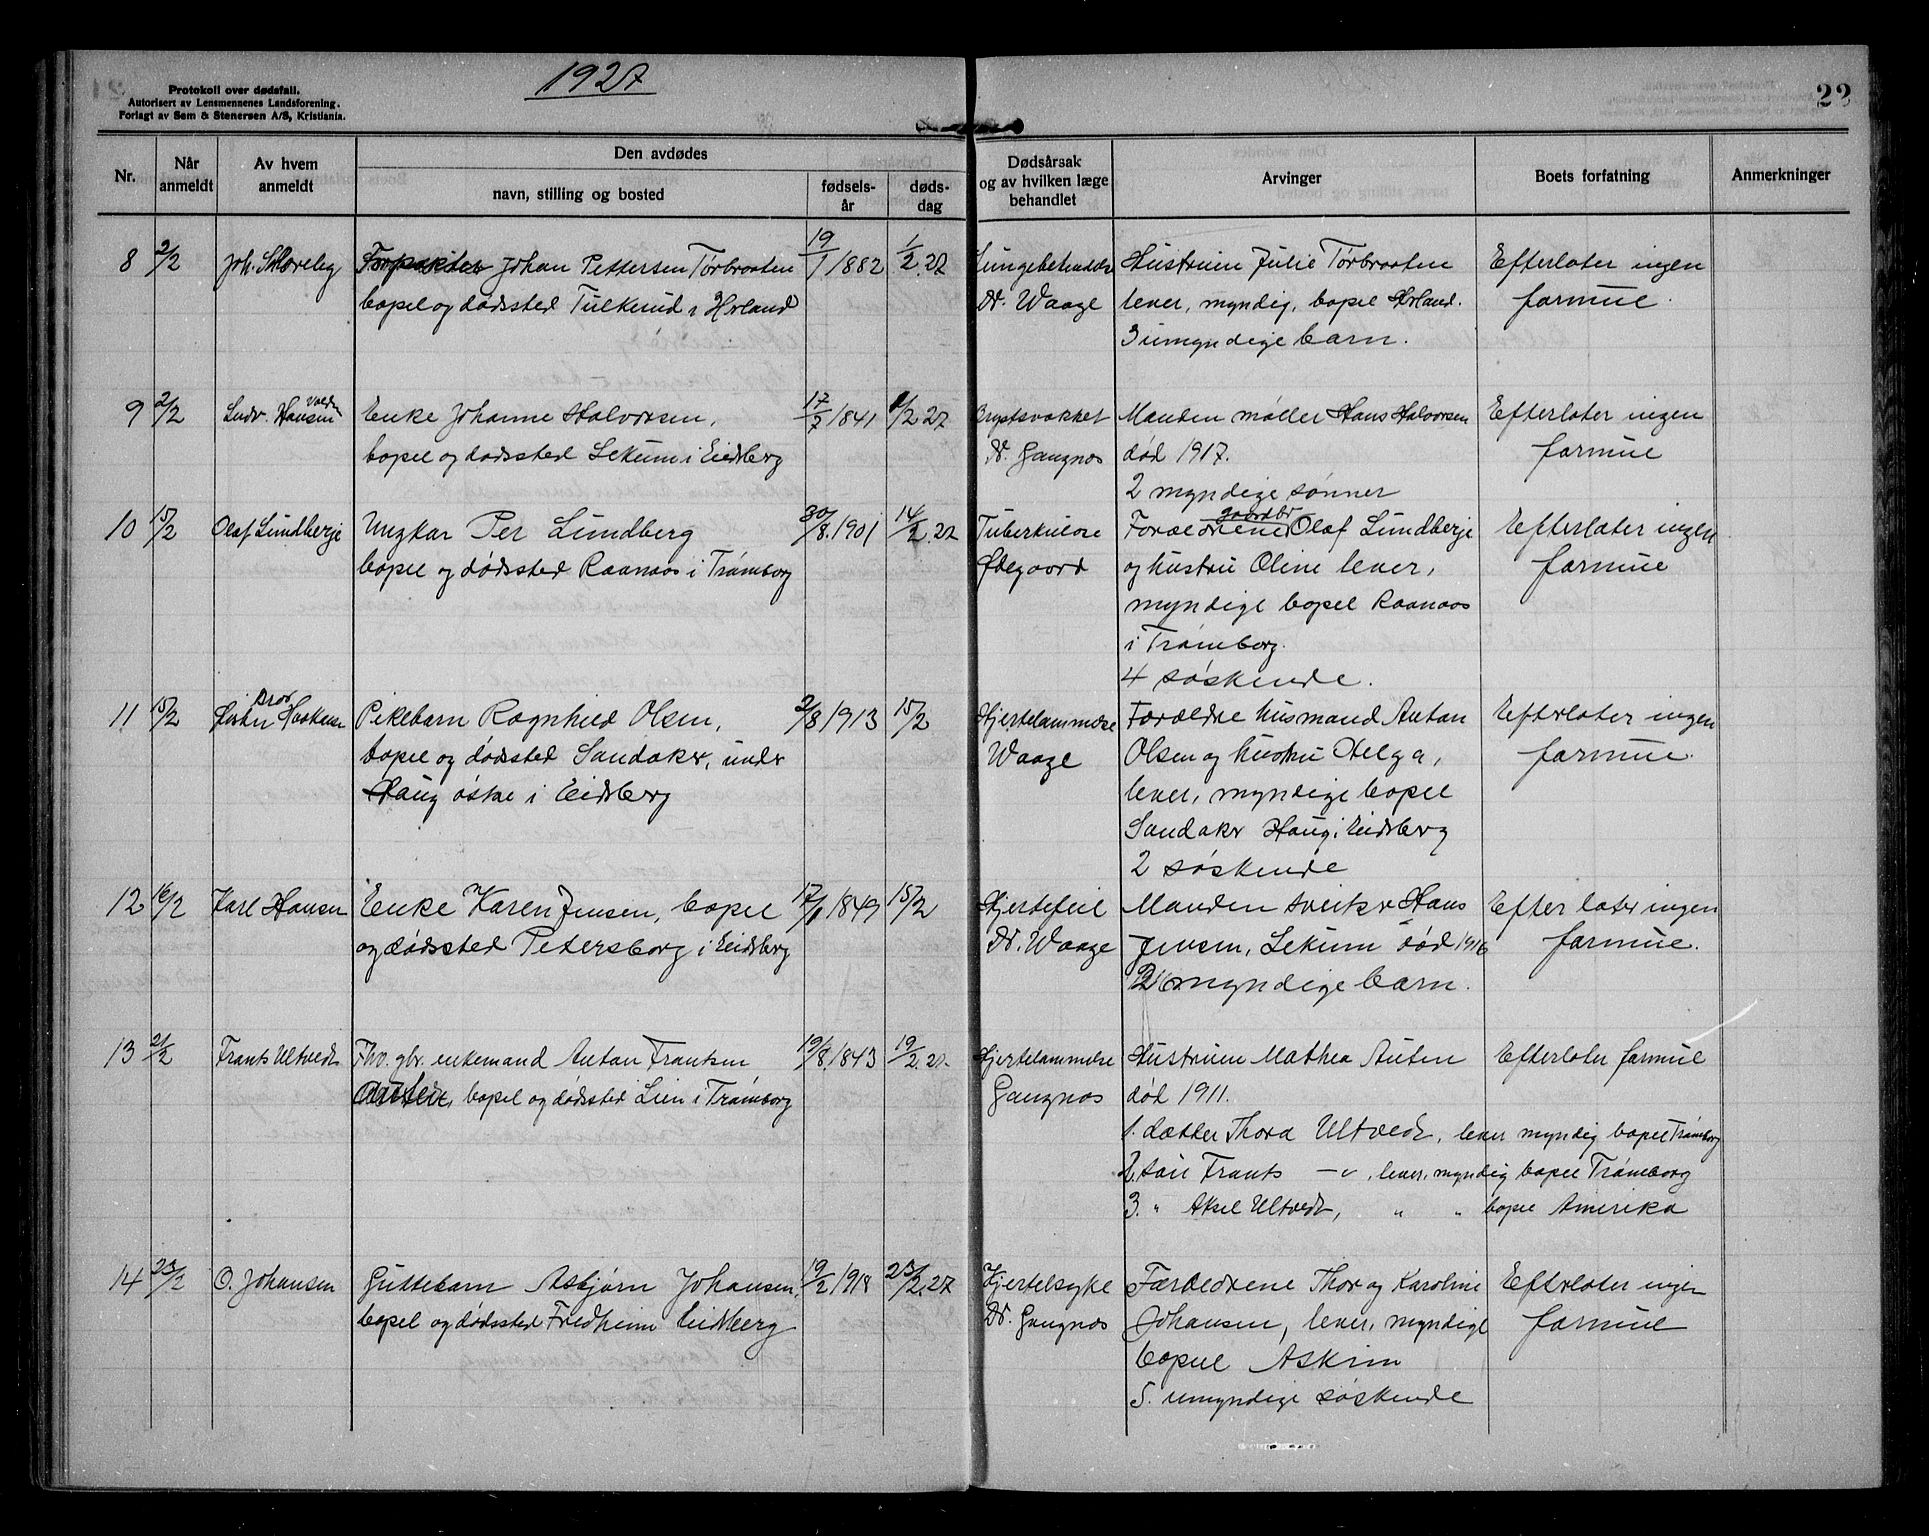 Protokoll over dødsfall.
Autorisert av Lensmennenes Landsforening.
Forlagt av Sem & Stenersen A/S, Kristiania.
1927
22
Nr.
Når anmeldt
Av hvem anmeldt
Den avdødes
navn, stilling og bosted
fødsels-år
døds-dag
Dødsårsak og av hvilken læge behandlet
Arvinger
Boets forfatning
Anmerkninger
8 2/2 Joh. Forpakter Johan Pettersen Torbraaten 19/1 1882 1/2.27 Dr. Waage Hustruen Julie Torbraaten Efterlater ingen
bopel og dødssted Tulkerud i Hærland lever, myndig, bopel Hærland. formue.
3 umyndige barn.
9 2/2 Ludv. Hansen Enke Johanne Halvorsen, 17/7 1841 1/2 27 Brystsvækket Manden møller Hans Halvorsen Efterlater ingen
bopel og dødssted Lekum i Eidsberg Dr. Gangnæs død 1917. formue
2 myndige sønner
10 15/2 Olaf Lundberje Ungkar Per Lundberg 30/8.1901 14/2.27 Tuberkulose Forældrene gaardbr. Olaf Lundberje Efterlater ingen
bopel og dødssted Raanaas i Trømborg Ødegaard og hustru Oline lever, formue
myndige bopel Raanaas
i Trømborg.
4 søskende.
11 15/2 Pikebarn Ragnhild Olsen, 2/8 1913 15/2 Hjertelammelse Forældre husmand Anton Efterlater ingen
bopel og dødssted Sandaker, under Waage Olsen og hustru Helga, formue.
Haug østre i Eidsberg lever, myndige bopel
Sandaker Haug i Eidsberg
2 søskende
12 16/2 Karl Hansen Enke Karen Jensen, bopel 1849 15/2 Hjertefeil Manden Hans Efterlater ingen
og dødssted Petersborg i Eidsberg Dr. Waage Jensen, Lekum død 1916 formue.
myndige barn.
13 21/2 Frants Ultvedt Fhv. gbr. enkemand Anton Frantsen 19/8.1843 19/2.27. Hjertelammelse Hustruen Mathea Anten Efterlater formue
bopel og dødssted Lien i Trømborg Gangnæs død 1911.
1. datter Thora Ultvedt, lever myndig bopel Trømborg
2. søn Frants —"—, lever, myndig bopel Trømborg
3. " Aksel Ultvedt, " " bopel Amerika
14 23/2 O. Johansen Guttebarn Asbjørn Johansen, 19/2 1918 23/2.27 Hjertesyke Forældrene Thor og Karoline Efterlater ingen
bopel og dødssted Fredheim Eidsberg Dr. Gangnæs Johansen, lever, myndige formue
bopel Askim
5. umyndige søskende